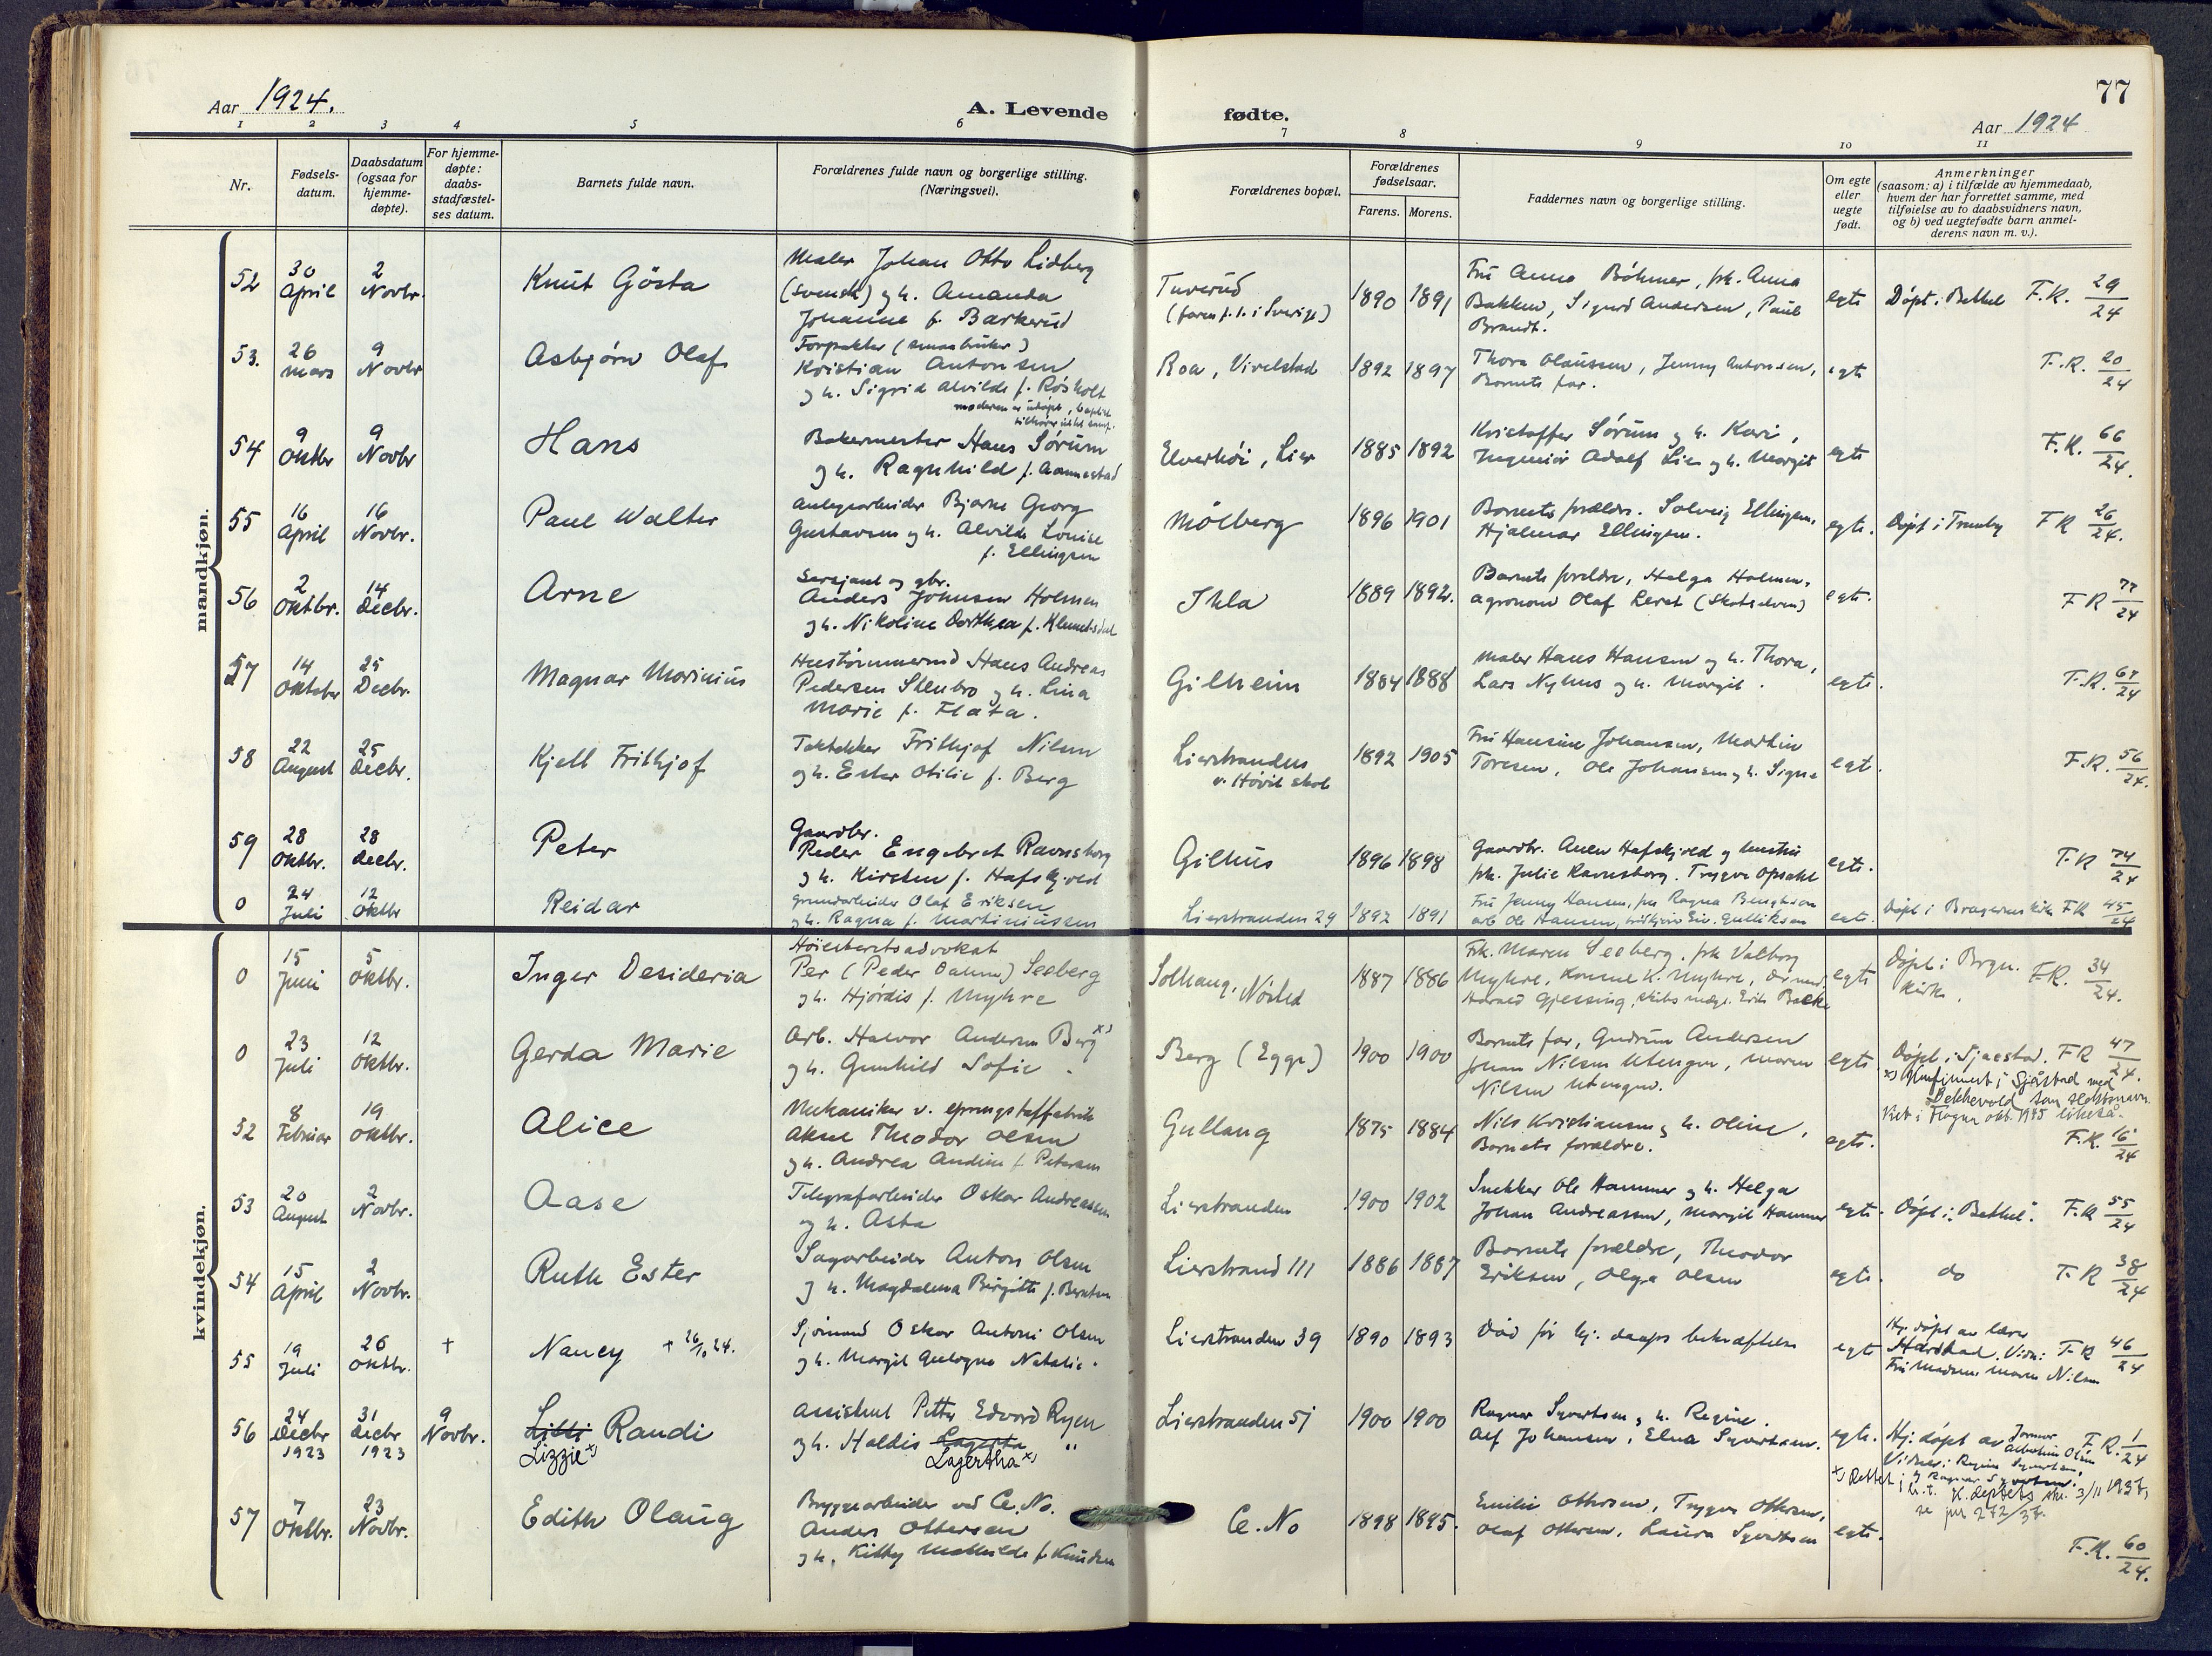 77
Aar 1924.
A. Levende fødte.
Aar 1924
1 2 3 4 5 6 7 8 9 10 11
Nr.
Fødsels-
datum.
Daabsdatum
(ogsaa for
hjemme-
døpte).
For hjemme-
døpte:
daabs-
stadfæstel-
ses datum.
Barnets fulde navn.
Forældrenes fulde navn og borgerlige stilling.
(Næringsvei).
Forældrenes bopæl.
Forældrenes
fødselsaar.
Farens. Morens.
Faddernes navn og borgerlige stilling.
Om egte
eller
uegte
født.
Anmerkninger
(saasom: a) i tilfælde av hjemmedaab,
hvem der har forrettet samme, med
tilføielse av to daabsvidners navn,
og b) ved uegtefødte barn anmel-
derens navn m. v.).
mandkjøn.
52
30 April
2 Novbr.
Knut Gösta
Maler Johan Otto Lidberg
(svensk) og h. Amanda
Johanne f. Barkerud
Tuverud
(faren f. t. i Sverige)
1890 1891
Fru Anna Böhmer, frk. Anna
Bakken, Sigurd Andersen, Paul
Brandt.
egte
Døpt i Bethel F.R. 29/24
53.
26 Mars
9 Novbr
Asbjørn Olaf
Forpakter (smaabruker)
Kristian Antonsen
og h. Sigrid Alvilde f. Røsholt
Roa, Vivelstad
1892 1897
Thora Olaussen, Jenny Antonsen,
Barnets far.
egte
F.R. 20/24
54
9 Oktbr
9 Novbr
Hans
Bakermester Hans Sørum
og h. Ragnhild f. Aannestad
Elverhøi, Lier
1885 1892
Kristoffer Sørum og h. Kari,
Ingeniør Adolf Lie og h. Margit
egte
F.R. 66/24.
55
16 April
16 Novbr.
Paul Walter
Anlegsarbeider Bjarne Georg
Gustavsen og h. Alvilde Louise
f. Ellingsen
Mölberg
1896 1901
Barnets forældre. Solveig Ellingsen,
Hjalmar Ellingsen.
egte.
Døpt i Tranby F R 26/24.
56
2 Oktbr.
14 Decbr.
Arne
Sersjant og gbr.
Anders Johnsen Holmen
og h. Nikoline Dorthea f.
Ihla
1889 1892.
Barnets forældre, Helga Holmen,
agronom Olaf (Skotselven)
egte.
F R 77/24
57
14 Oktober
25 Decbr.
Magnar Marinius
Hans Andreas
Pedersen Stenbro og h. Lina
Marie f. Flata.
Gilheim
1884 1888
Maler Hans Hansen og h. Thora,
Lars Nyhus og h. Margit.
egte.
F.R. 67/24
58
22 August
25 Decbr.
Kjell Frithjof
Taktekker Frithjof Nilsen
og h. Ester Otilie f. Berg
Lierstranden
v. Høvik skole
1892 1905
Fru Hansine Johansen, Martin
Toresen, Ole Johansen og h. Signe
egte.
F.R. 56/24.
59
28 Oktbr.
28 Decbr.
Peter
Gaardbr.
Peder Engebret Ravnsborg
og h. Kirsten f. Hafskjold
Gilhus
1896 1898
Gaardbr. Hafskjold og hustru
frk. Julie Ravnsborg. Trygve Opsahl
egte.
F.R 74/24
0
24 Juli
12 Oktbr
Reidar
Grundarbeider Olaf Eriksen
og h. Ragna f. Martiniussen
Lierstranden 29
1892 1891
Fru Jenny Hansen, fru Ragna Bengtson
arb Ole Hansen, Gulliksen
egte.
Døpt i Bragernes kirke FR 45/24
kvindekjøn.
0
15 Juni
5 Oktbr.
Inger Desideria
Høiesteretsadvokat
Per (Peder) Seeberg
og h. Hjørdis f. Myhre
Solhaug, Nøsted
1887 1886
Frk. Maren Seeberg. frk Valborg
Myhre,
Harald Gjessing, skibsmægl. Erik Backe
egte
Døpt i Brgn. F.R. 34/24.
kirke.
0
23 Juli
12 Oktbr.
Gerda Marie
Arb. Halvor Andersen Berg x)
og h. Gunhild Sofie.
Berg (Egge)
1900 1900
Barnets far, Gudrun Andersen
Johan Nilsen Utengen, Maren
Nilsen Utengen.
egte
Døpt i Sjaastad. FR 47/24.
x) Konfirmert i Sjåstad med
som slektsnavn.
52
8 Februar
19 Oktbr.
Alice
Mekaniker v. sprengstoffabrik
Aksel Theodor Olsen
og h. Andrea Andine f. Petersen
Gullaug
1875 1884
Nils Kristiansen og h. Oline,
Barnets forældre.
egte.
F.R. 16/24
53
20 August
2 Novbr.
Aase
Telegrafarbeider Oskar Andreassen
og h. Asta
Lierstranden
1900 1902
Snekker Ole Hammer og h. Helga
Johan Andreassen, Margit Hammer
egte.
Døpt i "Bethel". F.R 55/24
54
15 April
2 Novbr.
Ruth Ester
Sagarbeider Anton Olsen
og h. Magdalena Birgitte f. Berntsen
Lierstrand 111
1886 1887
Barnets forældre, Theodor
Eriksen, Olga Olsen
egte.
do F.R 38/24
55
19 Juli
26 Oktbr.
+
Nancy + 26/10 24.
Sjømand Oskar Antoni Olsen
og h. Margit Natalie.
Lierstranden 39
1890 1893
Død før hj. daaps bekræftelse
egte
Hj. døpt av lærer
Vidn: F.R 46/24
Fru Madsen Maren Nilsen
56
24 Decbr 1923
31 Decbr 1923
9 Novbr.
Lilli Randi
Lizzie x)
Assistent Petter Edvard Ryen
og h. Haldis Lagerta "
Lagertha x)
Lierstranden 51
1900 1900
Ragnar Syvertsen og h. Regine.
Alf Johansen, Elna Syvertsen.
egte.
Hj. døpt av F.R. 1/24
Vidner: Regine Syvertsen,
og Ragnar Syvertsen.
x) Rettet i h. t. K. deptets skr. 3/11 1937,
se jnr 272/37.
57
7 Oktbr.
23 Novbr.
Edith Olaug
Bryggearbeider ved Ce. No.
Anders Ottersen
og h. Kitty Mathilde f. Knudsen
Ce. No
1898 1895.
Emilie Ottersen, Trygve Ottersen,
Olaf Ottersen, Laura Syvertsen
egte.
F.R. 60/24.